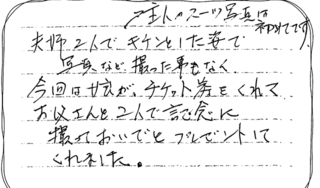 主人のスーツ写真は
初めてです
夫婦2人でキチンとした姿で
写真など撮った事もなく
今回は広が、チケット券をくれて
お父さんと2人で記念に
撮っておいでとプレゼントして
くれました。